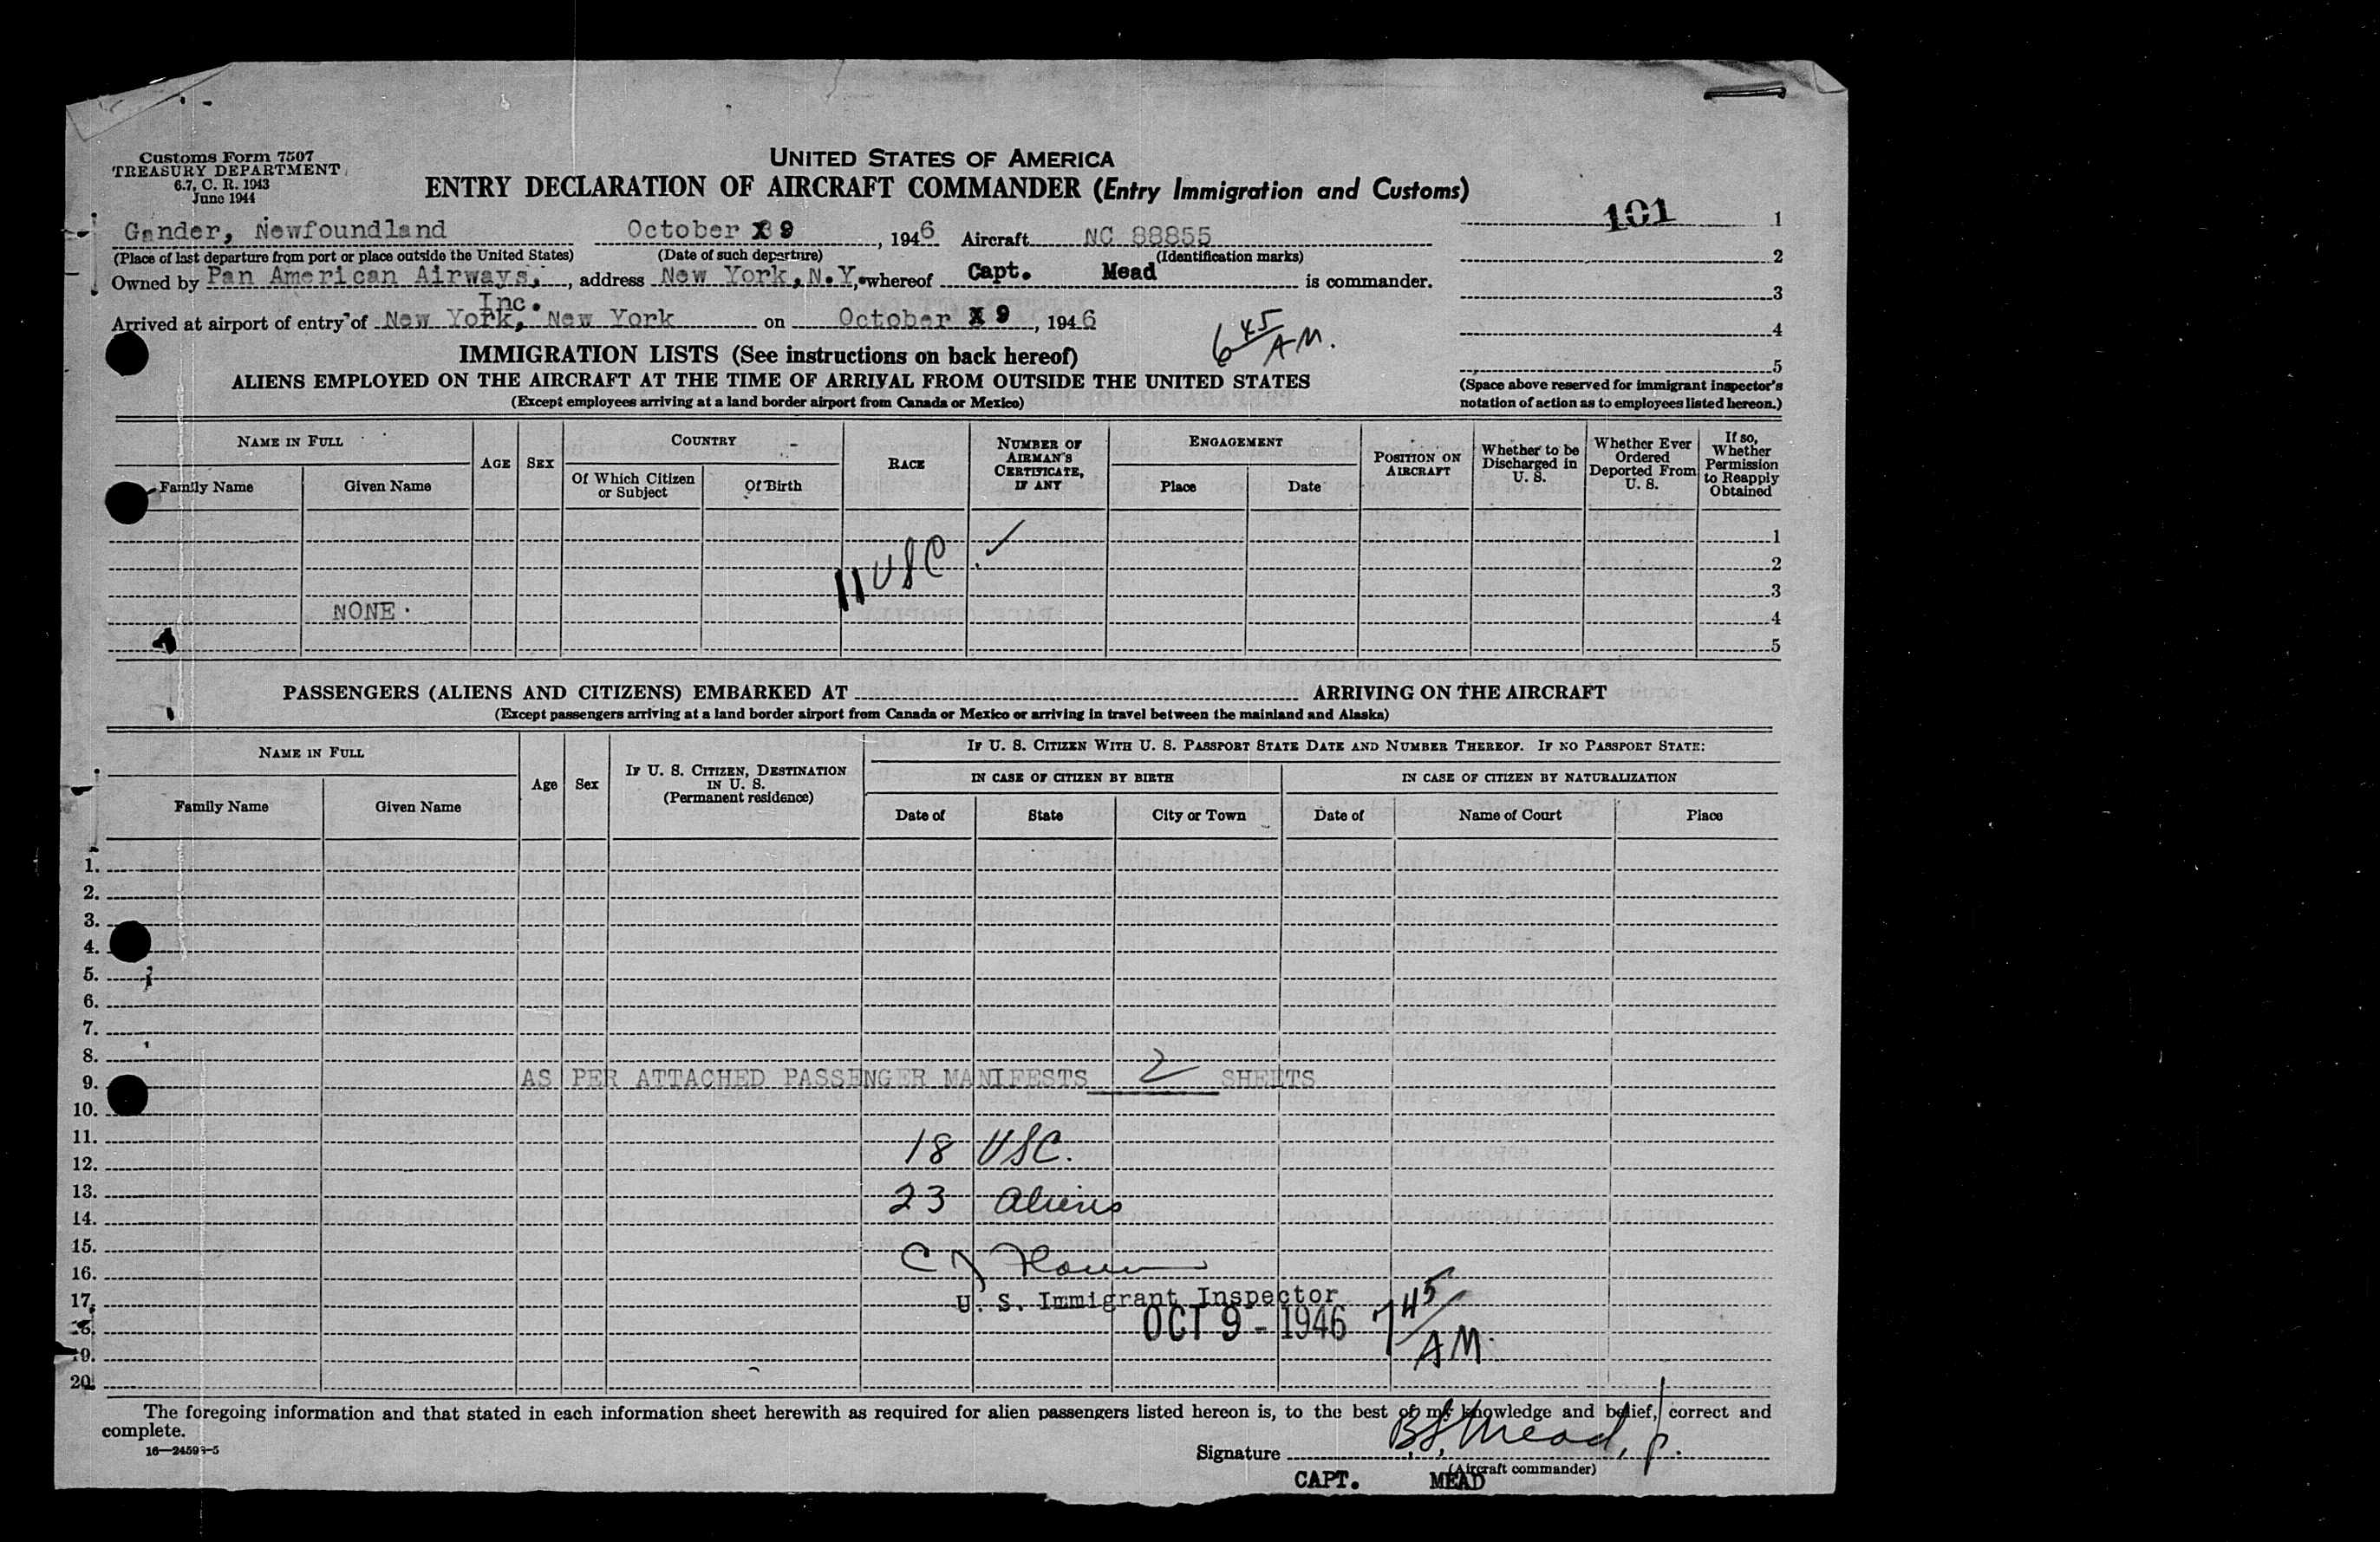 Customs Form 7507
TREASURY DEPARTMENT
6.7, C. R. 1943
June 1944
UNITED STATES OF AMERICA
ENTRY DECLARATION OF AIRCRAFT COMMANDER (Entry Immigration and Customs)
101 1
Gander, Newfoundland October 9, 1946 Aircraft NC 88855
(Place of last departure from port or place outside the United States) (Date of such departure) (Identification marks)
2
Owned by Pan American Airways, Inc. , address New York, N.Y. whereof Capt. Mead is commander.
3
Arrived at airport of entry of New York, New York on October X 9, 1946
4
6 45/AM.
IMMIGRATION LISTS (See instructions on back hereof)
5
ALIENS EMPLOYED ON THE AIRCRAFT AT THE TIME OF ARRIVAL FROM OUTSIDE THE UNITED STATES
(Except employees arriving at a land border airport from Canada or Mexico)
(Space above reserved for immigrant inspector's
notation of action as to employees listed hereon.)
NAME IN FULL
Family Name Given Name
AGE
SEX
COUNTRY
Of Which Citizen or Subject
Of Birth
RACE
NUMBER OF AIRMAN'S CERTIFICATE, IF ANY
ENGAGEMENT
Place Date
POSITION ON AIRCRAFT
Whether to be Discharged in U. S.
Whether Ever Ordered Deported From U. S.
If so, Whether Permission to Reapply Obtained
1
11 USC ✓
2
3
NONE 4
5
PASSENGERS (ALIENS AND CITIZENS) EMBARKED AT ARRIVING ON THE AIRCRAFT
(Except passengers arriving at a land border airport from Canada or Mexico or arriving in travel between the mainland and Alaska)
NAME IN FULL
Family Name Given Name
Age
Sex
IF U. S. CITIZEN, DESTINATION IN U. S.
(Permanent residence)
IF U. S. CITIZEN WITH U. S. PASSPORT STATE DATE AND NUMBER THEREOF. IF NO PASSPORT STATE:
IN CASE OF CITIZEN BY BIRTH IN CASE OF CITIZEN BY NATURALIZATION
Date of State City or Town Date of Name of Court Place
1.
2.
3.
4.
5.
6.
7.
8.
9. AS PER ATTACHED PASSENGER MANIFESTS 2 SHEETS
10.
11. 18 USC.
12.
13. 23 Aliens
14.
15.
16.
17. U. S. Immigrant Inspector
18. OCT 9 - 1946 7 45/AM.
19.
20.
The foregoing information and that stated in each information sheet herewith as required for alien passengers listed hereon is, to the best of my knowledge and belief, correct and
complete.
Signature Mead, jr.
(Aircraft commander)
CAPT. MEAD